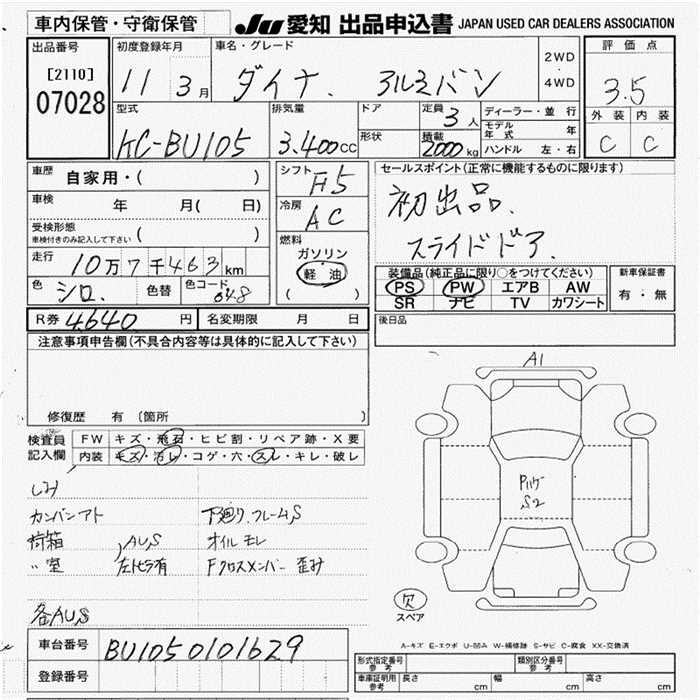 車内保管・守衛保管
JU 愛知 出品申込書 JAPAN USED CAR DEALERS ASSOCIATION
出品番号 [2110] 07028
初度登録年月 11 3月
車名・グレード ダイナ アルミバン
2WD ・ 4WD
評価点 3.5
外装 C 内装 C
型式 KC-BU105
排気量 3.400cc
ドア
形状
定員 3人
積載 2000kg
ディーラー・並行
モデル年式 年
ハンドル 左・右
車歴 自家用・( )
車検 年 月( 日)
受検形態 車検付きのみ記入して下さい ( )
走行 10万7千463km
色 シロ. 色替 色コード 048
シフト F5
冷房 AC
燃料 ガソリン 軽油
( )
セールスポイント(正常に機能するものに限ります)
初出品.
スライドドア.
装備品(純正品に限り○をつけてください)
PS PW エアB AW
SR ナビ TV カワシート
新車保証書
有・無
R券 4640円 名変期限 月 日
後日品
注意事項申告欄(不具合内容等は具体的に記入して下さい)
修復歴 有 〔箇所
検査員記入欄
FW キズ・飛石・ヒビ割・リペア跡・X要
内装 キズ・汚レ・コゲ・穴・スレ・キレ・破レ
シミ
カンバンアト 下廻り.フレームS
荷箱 AUS オイルモレ
〃室 Fクロスメンバー歪み
各AUS
A1
S2
欠
スペア
A-キズ E-エクボ U-凹み W-補修跡 S-サビ C-腐食 XX-交換済
車台番号 BU1050101629
登録番号
形式指定番号 参考
類別区分番号 参考
車庫証明用 参考 長さ cm 幅 cm 高さ cm